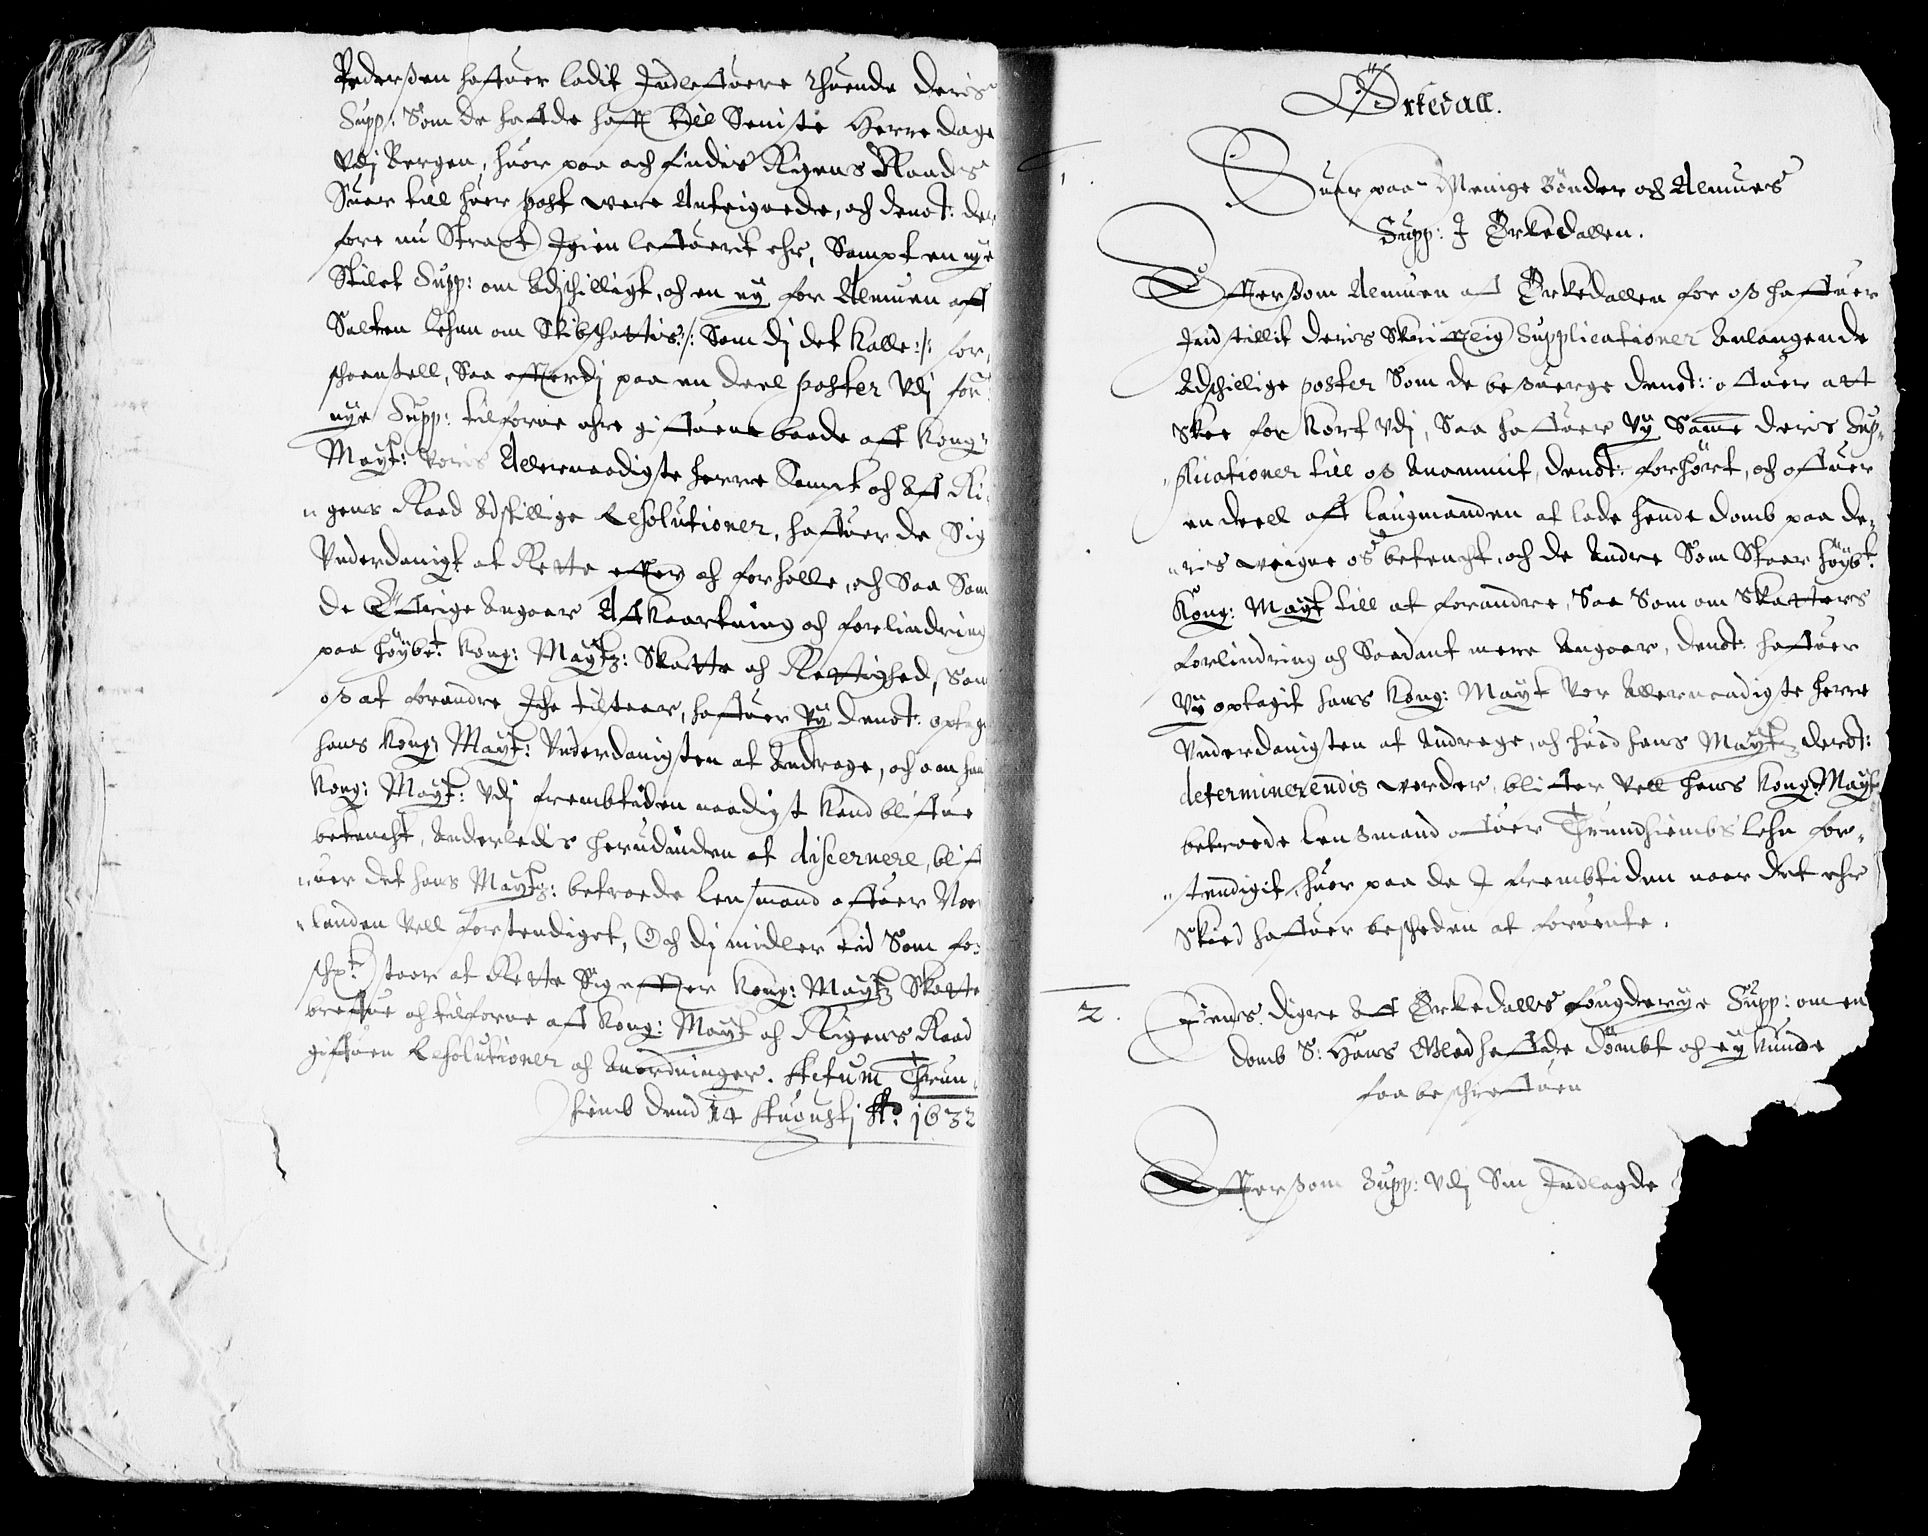 Pedersen hafuer ladit Indlefuere thuende deris
Supp: Som de hafde hafft till Seniste Herre dage
Vdj Bergen, huor paa och findis Rigens Raads
Suar till huer post vere Anteignede, och dennot: der
fore nu Straxt Igien lefuerit ehr, Sampt en nye
Stilet Supp: om Adschilligt, och en ny for Almuen aff
Salten Lehn om Skibschattis :/: Som dj det kalle :/: for
schaansell, Saa efterdj paa en deel poster Vdj for:
nye Supp: tilforne ehre gifuene baade aff Kong:
Mayt: Voris Allernaadigste herre Sampt och Aff Ri
gens Raad Adskillige Resolutioner, hafuer de Sig
Vnderdanigt at Rette effter och forholle, och Saa Som
de Öfrige Angaar Affkaartning och forlindring
paa höybe:t Kong: Maytz: Skatte och Rettighed, Som
os at forandre Iche tilstaar, hafuer Vy dennot: optag
hans Kong: Mayt: Vnderdanigsten at Andrage, och om han
Kong: Mayt: Vdj frembtiden naadigst kand blifue
betencht, Anderledis herudinden at discernere, blif
uer det hans Maytz: betroede Lensmand offuer Nor
landen Vell fortendiget, Och dj midler tid Som for
schr:t staar at Rette Sig effter Kong: Maytz Skatte
brefue och tilforne aff Kong: Mayt och Rigens Raad
gifuen Resolutioner och Anordninger. Actum Trun
hiemb dend 14 Augustj Ao: 1632
Örkedall.
1.
Suar paa Menige Bönder och Almues
Supp: I Örkedallen.
Efftersom Almuen af Örkedallen for os haffuer
Ind stillit deris Skrifftlig Supplicationer Anlangende
Adschillige poster Som de besuerge dennot: offuer att
Skee for kort Vdj, Saa haffuer Vy Samme deris Sup
plicationer till os Anammit, dennot: forhört, och offuer
en deell aff Laugmanden at lade hende domb paa de
ris veigne os betencht, och de Andre Som Staar höyb:t
Kong: Mayt till at forandre, Saa Som om Skatters
forlindring och Saadant mere Angaar, dennot: haffuer
Vy optagit hans Kong: Mayt Vor Allernaadigste herre
Vnderdanigsten at Andrage, och huad hans Maytz derot:
determinerendis vorder, blifuer Vell hans Kong: Mayt
betroede Lensmand offuer Trundhiembs Lehn for
stendigit, huor paa de I frembtiden naar det ehr
Skeed haffuer bescheden at foruente.
2.
Jens Digre Aff Örkedalls fougderye Supp: om en
domb S: Hans Med haffde dömbt och ey kunde
faa beschreffuen
Efftersom Supp: Vdj Sin Indlagde